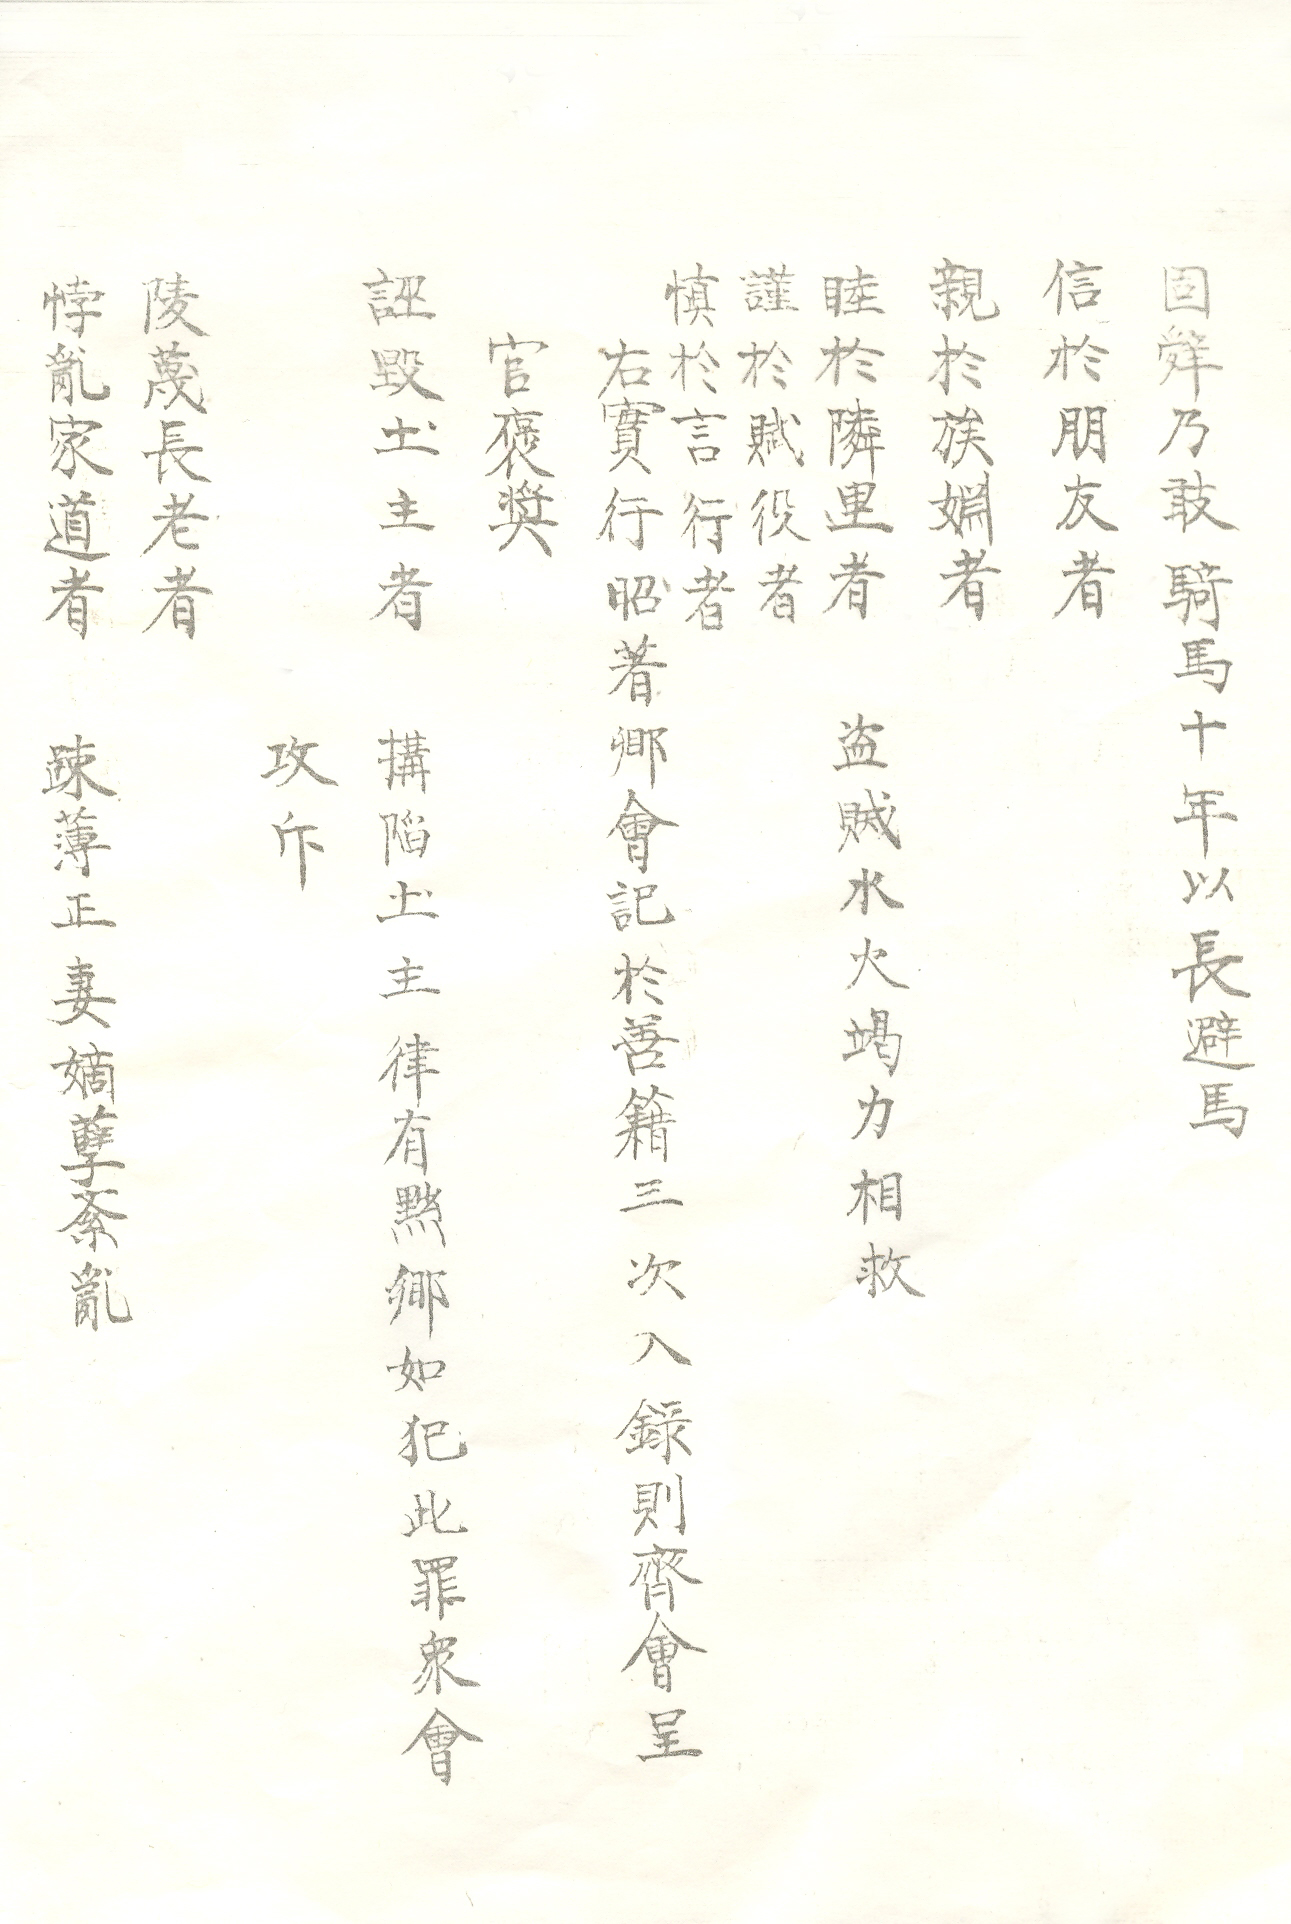 固辤乃敢騎馬十年以長避馬
信於朋友者
親於族婣者
睦於隣里者 盗賊水火竭力相救
謹於賦役者
愼於言行者
右實行昭著鄕會記於善籍三次入錄則齊會呈
官褒奬
誣毁土主者 搆陷土主律有㸃鄕如犯此罪衆會
攻斥
陵蔑長老者
悖亂家道者 踈薄正妻嫡孽紊亂